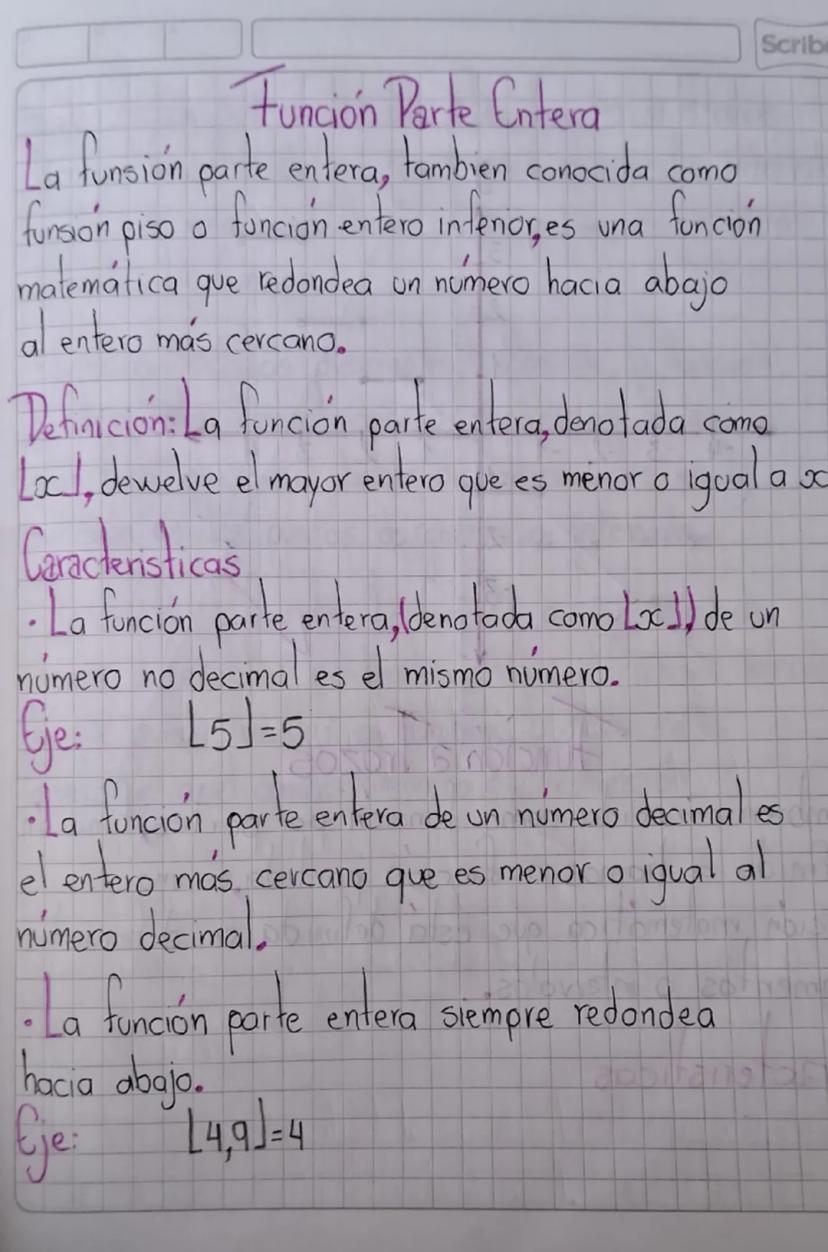 Scrib
Función Parte Entera
La funsión parte entera, tambien conocida como
funsión piso o función entero inferior, es una función
matemática que redondea un número hacia abajo
al entero más cercano.
Definición: La función parte entera, denotada como
⌊x⌋, devuelve el mayor entero que es menor o igual a x
Caracteristicas
· La función parte entera, (denotada como ⌊x⌋) de un
número no decimal es el mismo número.
Eje: ⌊5⌋=5
· La función parte entera de un número decimal es
el entero más cercano que es menor o igual al
número decimal.
· La función parte entera siempre redondea
hacia abajo.
Eje: ⌊4,9⌋=4